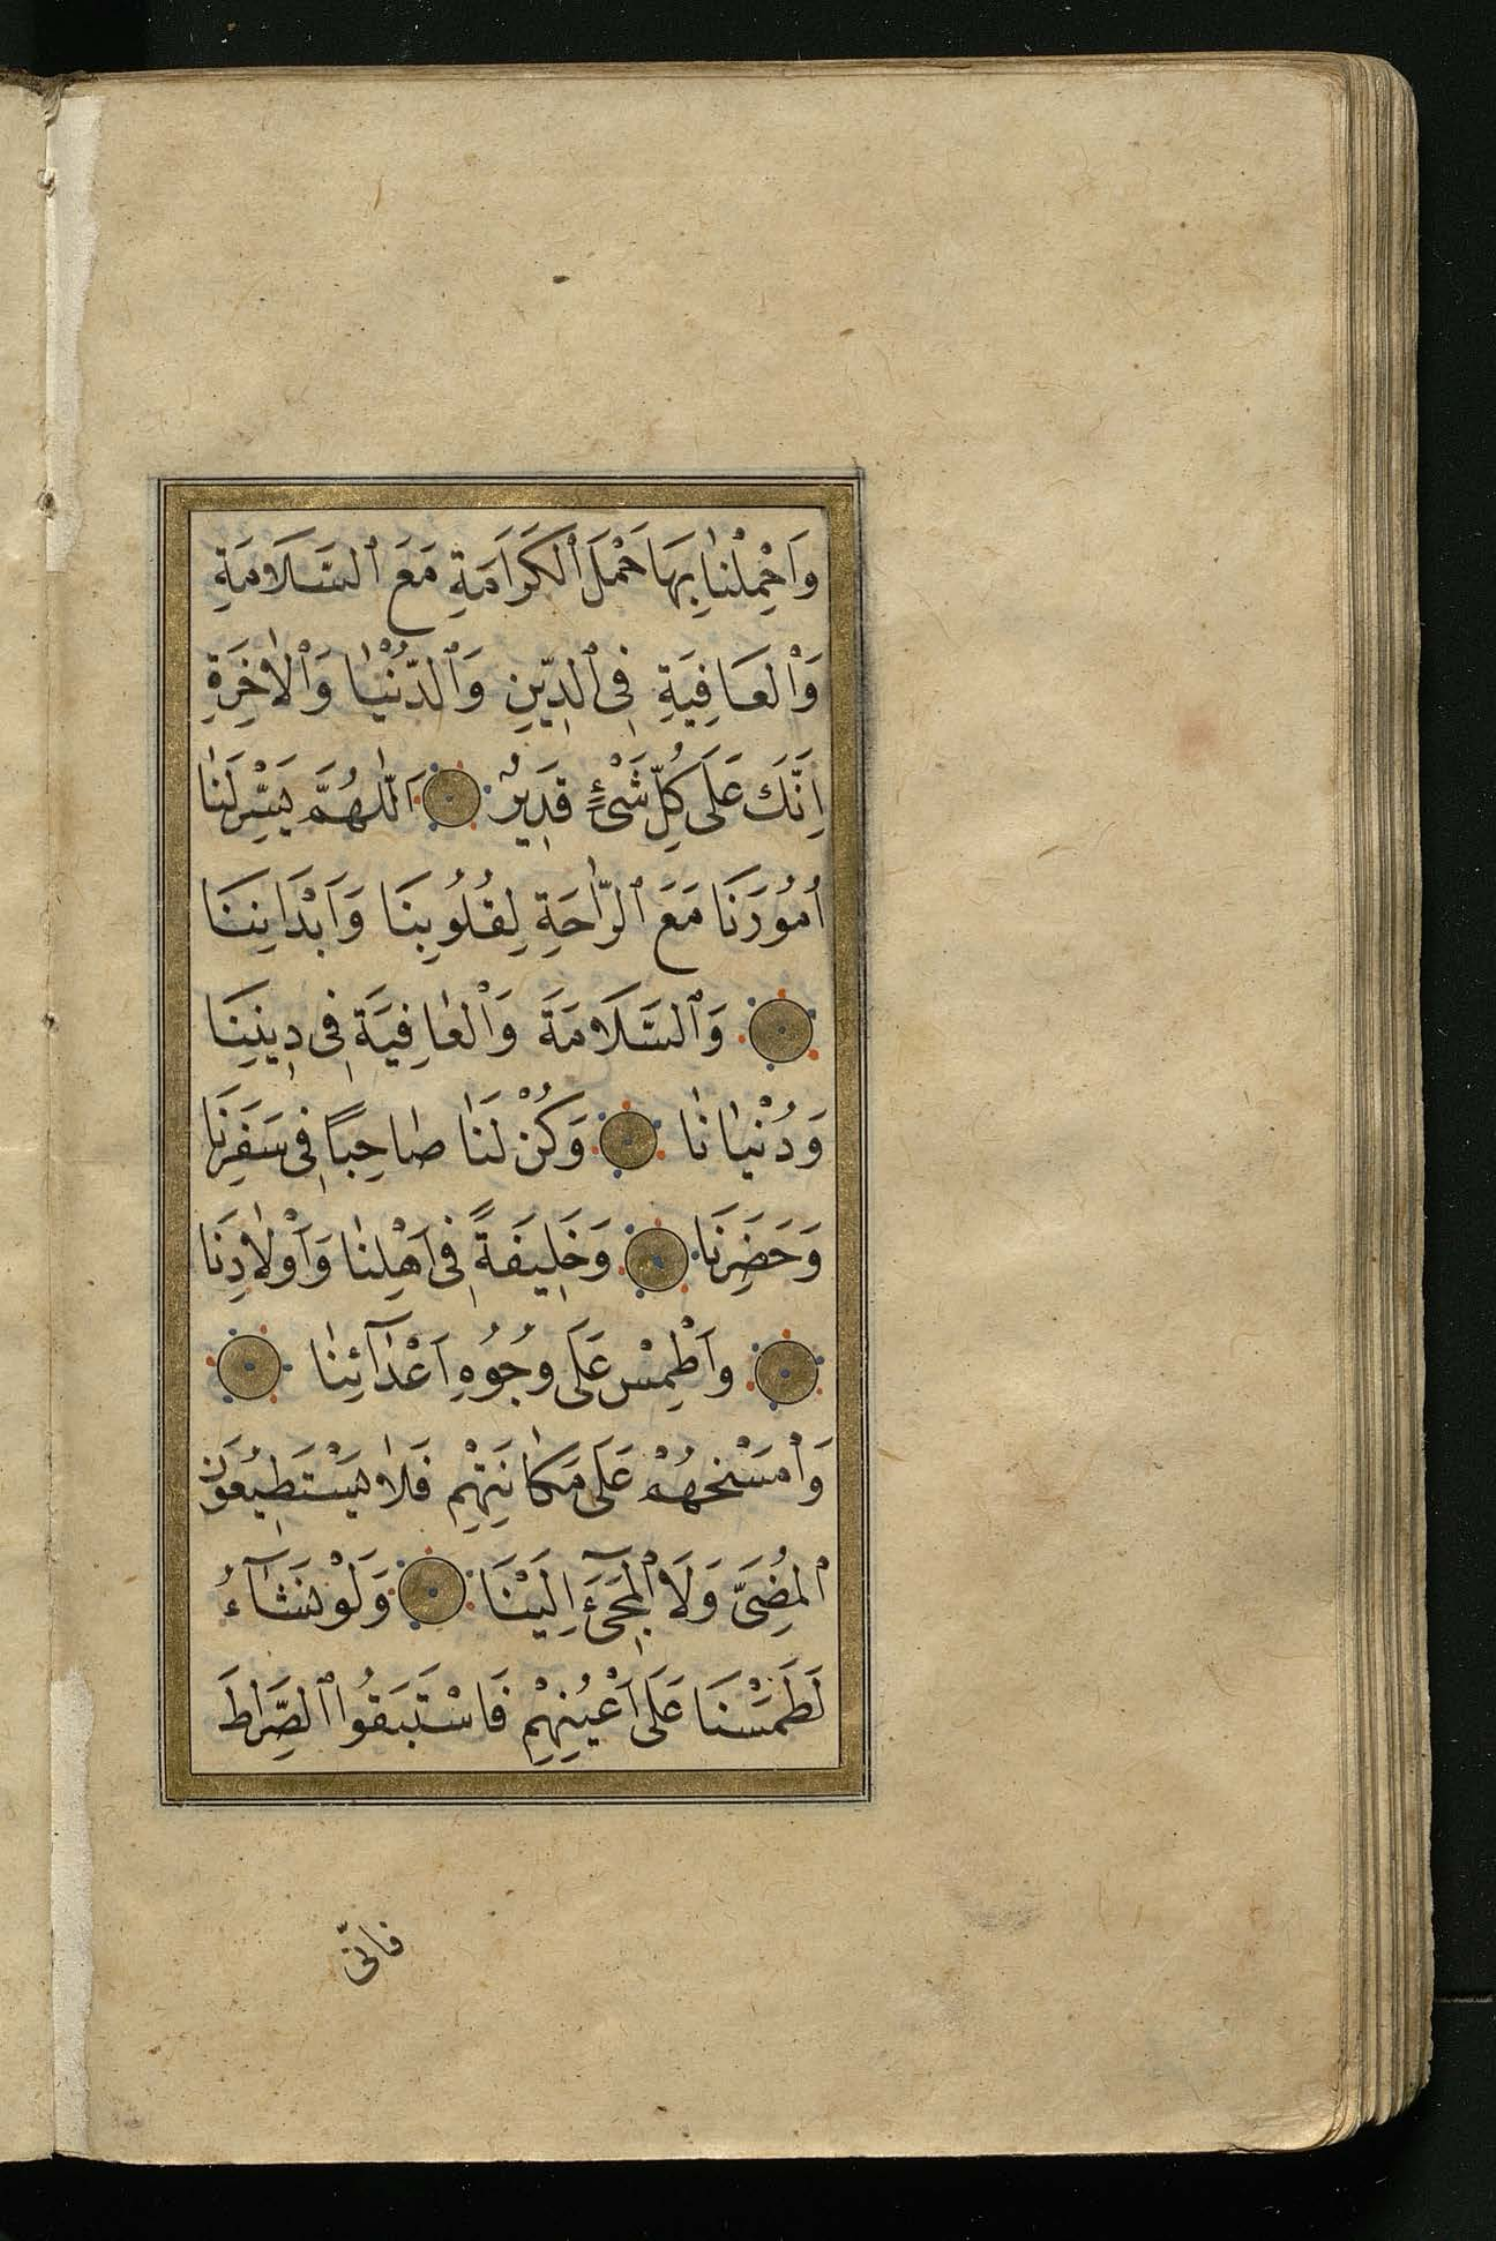 وَاحْمِلْنٰا بِهَا حَمْلَ ٱلْكَرَامَةِ مَعَ ٱلسَّلَامَةِ
وَٱلْعَافِيَةِ فِى ٱلدِّينِ وَٱلدُّنْيٰا وَٱلْاٰخِرَةِ
اِنَّكَ عَلَى كُلِّ شَىْءٍ قَدِيرٌ اَللّٰهُمَّ يَسِّرْ لَنٰا
اُمُورَنَا مَعَ ٱلرّٰاحَةِ لِقُلُوبِنَا وَاَبْدَانِنَا
وَٱلسَّلَامَةَ وَٱلْعٰافِيَةَ فِى دِينِنَا
وَدُنْيٰانٰا وَكُنْ لَنٰا صٰاحِبًا فِى سَفَرِنَا
وَحَضَرِنَا وَخَلِيفَةً فِى اَهْلِنٰا وَاَوْلٰادِنَا
وَاَطْمِسْ عَلَى وُجُوهِ اَعْدٰٓائِنٰا
وَاْمْسَخْهُمْ عَلَى مَكٰانَتِهِمْ فَلٰا يَسْتَطِيعُونَ
ٱلْمُضِىَّ وَلَا ٱلْمَجِىٓءَ اِلَيْنَا وَلَوْ نَشَآءُ
لَطَمَسْنَا عَلَى اَعْيُنِهِمْ فَاسْتَبَقُوا ٱلصِّرٰاطَ
فانّى